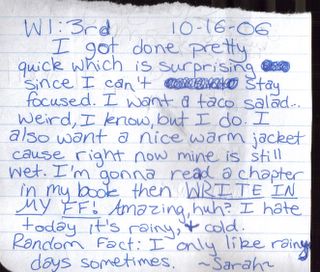 W1: 3rd 10-16-06
I got done pretty
quick which is surprising
since I can't stay
focused. I want a taco salad...
weird, I know, but I do I
also want a nice warm jacket
cause right now mine is still
wet. I'm gonna read a chapter
in my book then WRITE IN
MY FF! Amazing, huh? I hate
today it's rainy, + cold.
Random Fact: I only like rainy
days sometimes. ~Sarah~